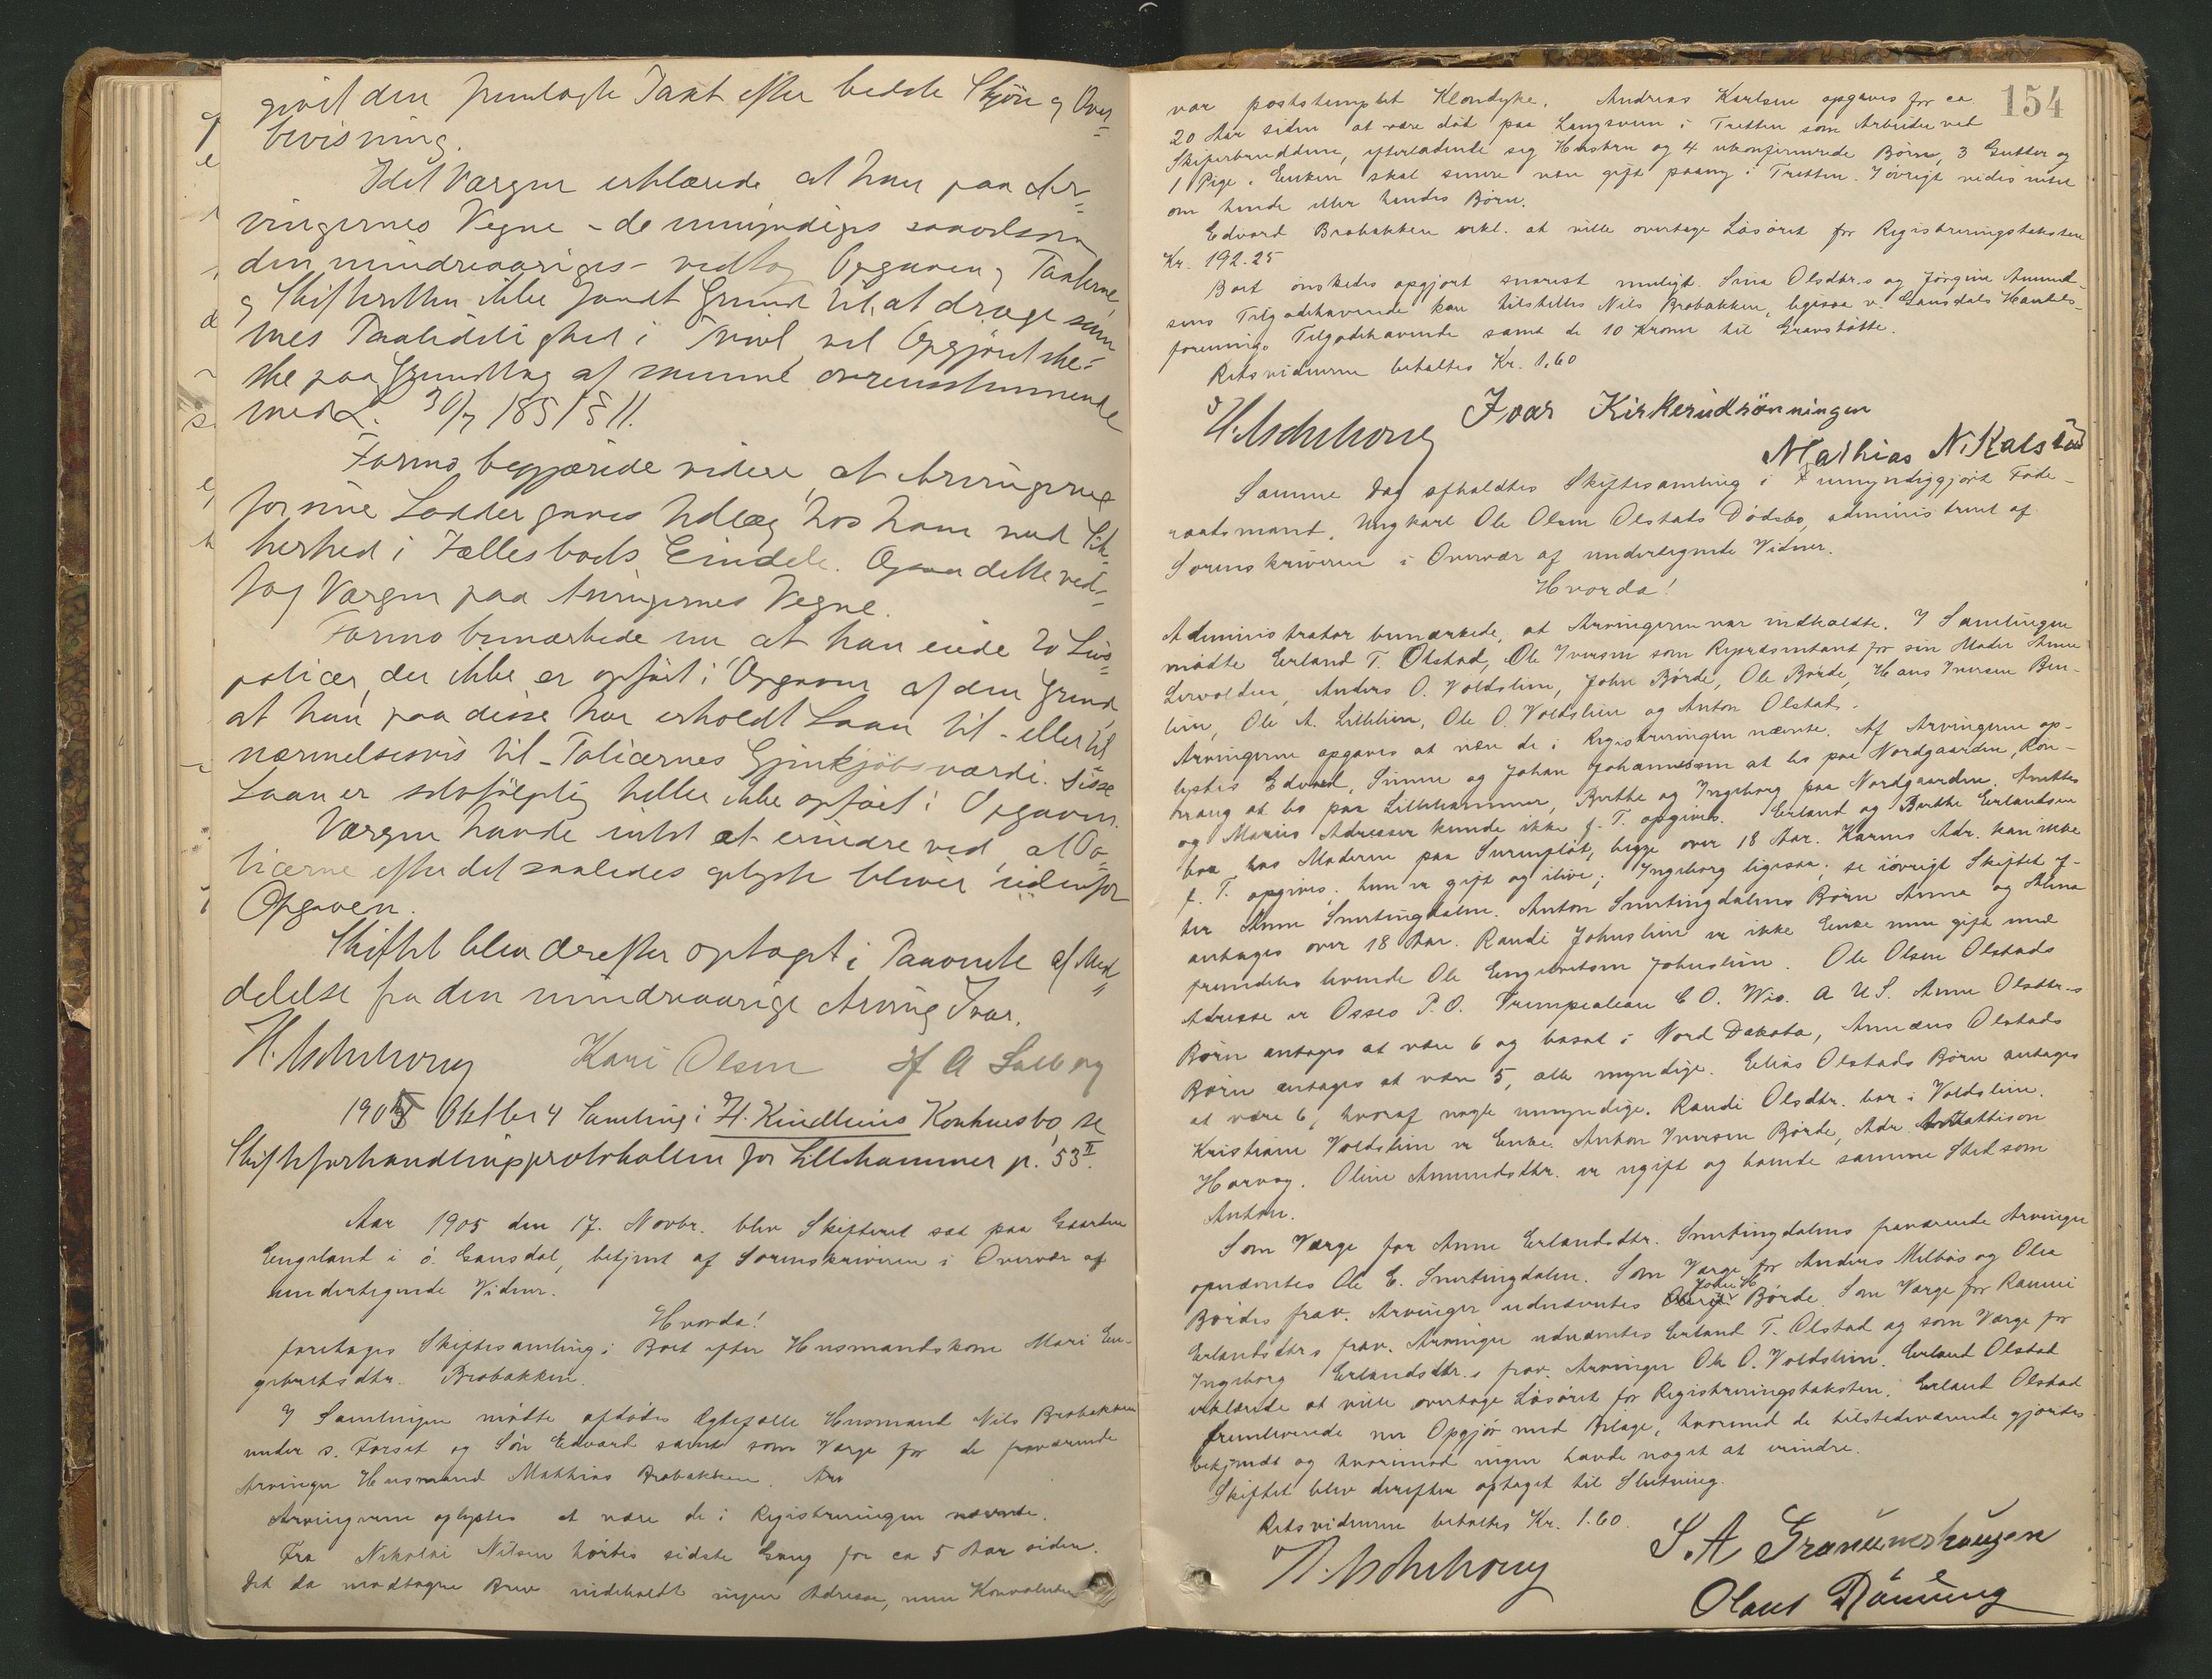 givet den fremlagte Taxt efter bedste Skjøn og Over=
bevisning.
Idet Værgen erklærede at han paa Ar=
vingernes Vegne - de umyndiges saavelsom
den mindreaariges - vedtog Opgaven og Taxterne
og Skifteretten ikke fandt Grund til at drage
mes Paalidelighed i Tvivl, vil Opgjøret ske=
ske paa Grundlag af samme overensstemmende
med L. 30/7 1851 § 11.
Formo begjærede videre at Arvingerne
for sine Lodder gaves Udlæg hos ham med Sik=
kerhed i Fællesboets Eiendele. Ogsaa dette ved=
tog Værgen paa Arvingernes Vegne.
Formo bemærkede nu at han eiede to Livs=
policer, der ikke er opført i Opgaven af den Grund
at han paa disse har erholdt Laan til - eller til
nærmelsesvis til - Policernes Gjenkjøbsværdi. Disse
Laan er selvfølgelig heller ikke opført i Opgaven.
Værgen havde intet at erindre ved, at Po=
licerne efter det saaledes oplyste bliver udenfor
Opgaven.
Skiftet blev derefter optaget i Paavente af Med=
delelse fra den mindreaarige Arving Ivar.
H. Aschehoug Kari Olsen H A Solberg
1905 Oktber 4 Samling i H. Kindleins Konkursbo, se
Skifteforhandlingsprotokollen for Lillehammer p. 53 II.
Aar 1905 den 17. Novbr. blev Skifteret sat paa Gaarden
Engeland i ö. Gausdal, betjent af Sorenskriveren i Overvær af
undertegnede Vidner.
Hvorda!
foretoges Skiftesamling i Boet efter Husmandskone Mari En-
gebretsdtr. Brobakken.
I Samlingen mødte afdødes Ægtefælle Husmand Nils Brobakken
under s. Forset og Søn Edvard samt som Værge for de fraværende
Arvinger Husmand Mathias Brobakken.
Arvingerne oplystes at være de i Registreringen nævnte.
Fra Nikolai Nilsen hørtes sidste Gang for ca 5 Aar siden.
Det da modtagne Brev indeholdt ingen Adresse, men Konvolutten
154
var poststemplet Klondyke. Andreas Karlsen opgaves for ca
20 Aar siden at være död paa Langsveen i Tretten som Arbeider ved
Skiferbruddene, efterladende sig Hustru og 4 ukonfirmerede Børn, 3 Gutter og
1 Pige. Enken skal senere være gift paany i Tretten. Iøvrigt vides intet
om hende eller hendes Børn.
Edvard Brobakken erkl. at ville overtage Løsøret for Registreringstaksten
Kr. 192.25
Boet ønskedes opgjort snarest muligt. Sina Olsdtr.s og Jørgine Amund-
sens Tilgodehavende kan tilstilles Nils Brobakken, ligesaa v. Gausdals Handels-
forenings Tilgodehavende samt de 10 Kroner til Gravstøtte.
Retsvidnerne betaltes Kr. 1.60
H. Aschehoug Ivar Kirkerudrönningen
Mathias N. Kalstad
Samme Dag afholdtes Skiftesamling i umyndiggjort Føde-
raadsmand, Ungkarl Ole Olsen Olstads Dødsbo, administreret af
Sorenskriveren i Overvær af undertegnede Vidner.
Hvorda!
Administrator bemærkede, at Arvingerne var indkaldte. I Samlingen
mødte Erland T. Olstad, Ole Iversen som Repræsentant for sin Moder Anne
Lervolden, Anders O. Voldslien, John Børde, Ole Børde, Hans Iversen
lien, Ole A. Lillelien, Ole O. Voldslien og Anton Olstad.
Arvingerne opgaves at være de i Registreringen nævnte. Af Arvingerne op-
lystes Edvard, Simen og Johan Johannessen at bo paa Nordgaarden,
at bo paa Lillehammer, Berthe og Ingeborg paa Nordgaarden. Anettes
og Marius Adresser kunde ikke f. T. opgives. Erland og Berthe Erlandsen
bor hos Moderen paa, begge over 18 Aar. Karens Adr. kan ikke
f. T. opgives; hun er gift og ilive; Ingeborg ligesaa; se iøvrigt Skiftet ef-
ter Anne Snertingdalen. Anton Snertingdalens Børn Anna og Alma
antages over 18 Aar. Randi Johnslien er ikke Enke men gift med
fremdeles levende Ole Engebretsen Johnslien. Ole Olsen Olstads
Adresse er Osseo P.O. Trempealeau C O. Wis. A U.S. Anne Olsdtr.s
Børn antages at være 6 og bosat i Nord Dakota, Amæus Olstads
Børn antages at være 5, alle myndige. Elias Olstads Børn antages
at være 6, hvoraf nogle umyndige. Randi Olsdtr. bor i Voldslien.
Kristiane Voldslien er Enke. Anton Iversen Børde, Adr. Mattison
. Oline Amundsdtr. er ugift og havde samme Sted som
Anton.
Som Værge for Anne Erlandsdtr. Snertingdalens fraværende Arvinger
opnævntes Ole E. Snertingdalen. Som Værge for Anders Melbøs og Olea
Bördes frav. Arvinger udnævntes John H. Børde. Som Værge for Rannei
Erlandsdtr.s frav. Arvinger udnævntes Erland T. Olstad og som Værge for
Ingeborg Erlandsdtr.s frav. Arvinger Ole O. Voldslien. Erland Olstad
erklærede at ville overtage Løsøret for Registreringstaksten. Erland Olstad
fremleverede nu Opgjør med Bilage, hvormed de tilstedeværende gjordes
bekjendt og hvorimod ingen havde noget at erindre.
Skiftet blev derefter optaget til Slutning.
Retsvidnerne betaltes Kr. 1.60.
H. Aschehoug S. A. Granumshaugen
Olaus Rönning